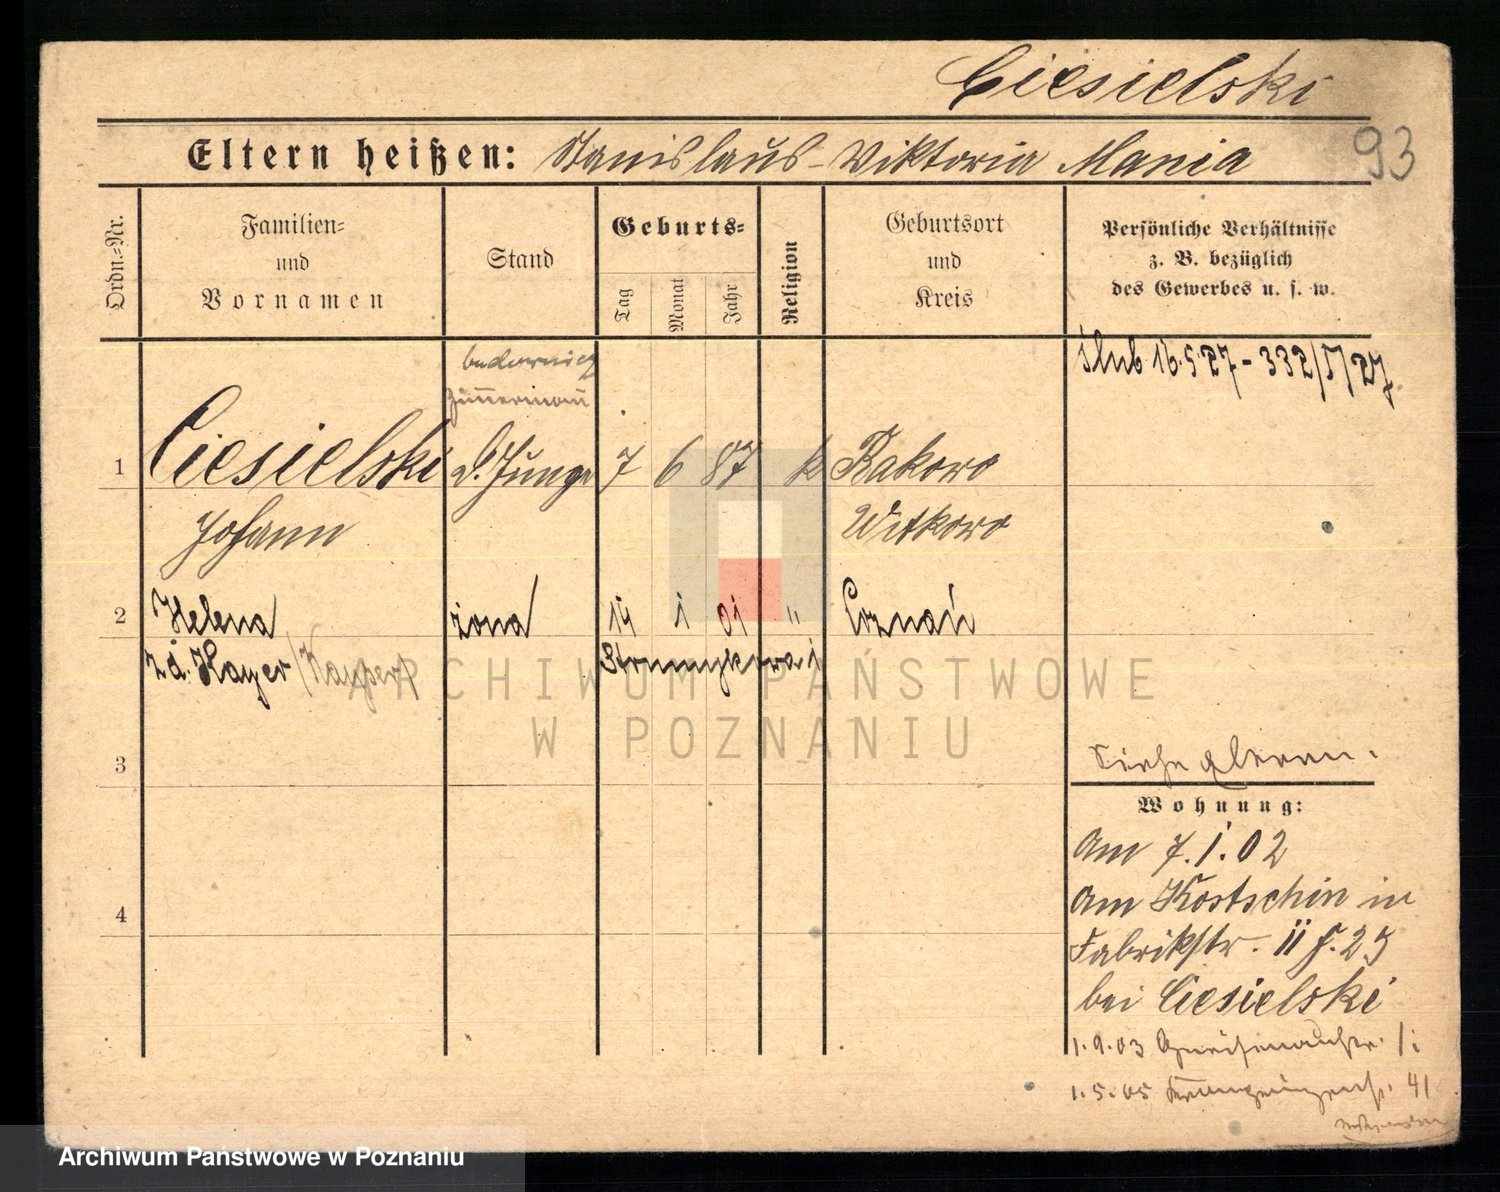 Ciesielski
Eltern heißen: Stanislaus - Viktoria Mania
93
Ordn.-Nr.
Familien-
und
Vornamen
Stand
Geburts-
Tag
Monat
Jahr
Religion
Geburtsort
und
Kreis
Persönliche Verhältnisse
z. B. bezüglich
des Gewerbes u. s. w.
ślub 16.5.27 - 332/V/27.
budownicz
1 Ciesielski D. Junge 7 6 87 k Rakowo
Johann Witkowo
2 Helena żona 14 1 01 " Poznań
z d. Hayer
ARCHIWUM PAŃSTWOWE
W POZNANIU
3
Siehe
Wohnung:
am 7.1.02
am Kostschin in
Fabrikstr. II
bei Ciesielski
1.9.03 Gneisenaustr.
1.5.05 41
4
Archiwum Państwowe w Poznaniu